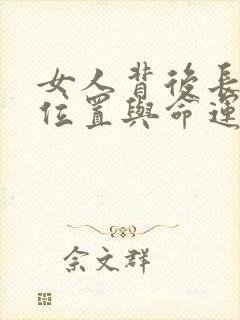 女人背後長
位置與命運
佘文群